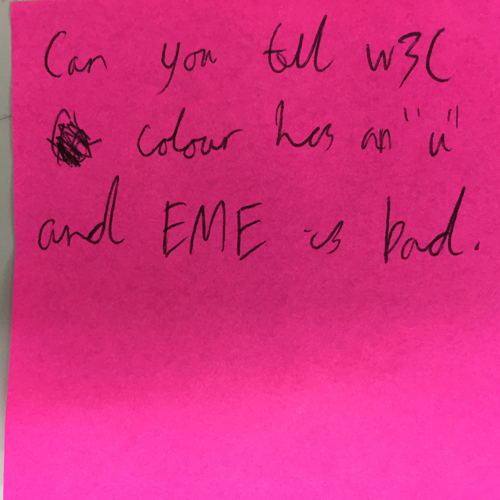 Can you tell W3C
colour has an "u"
and EME is bad.